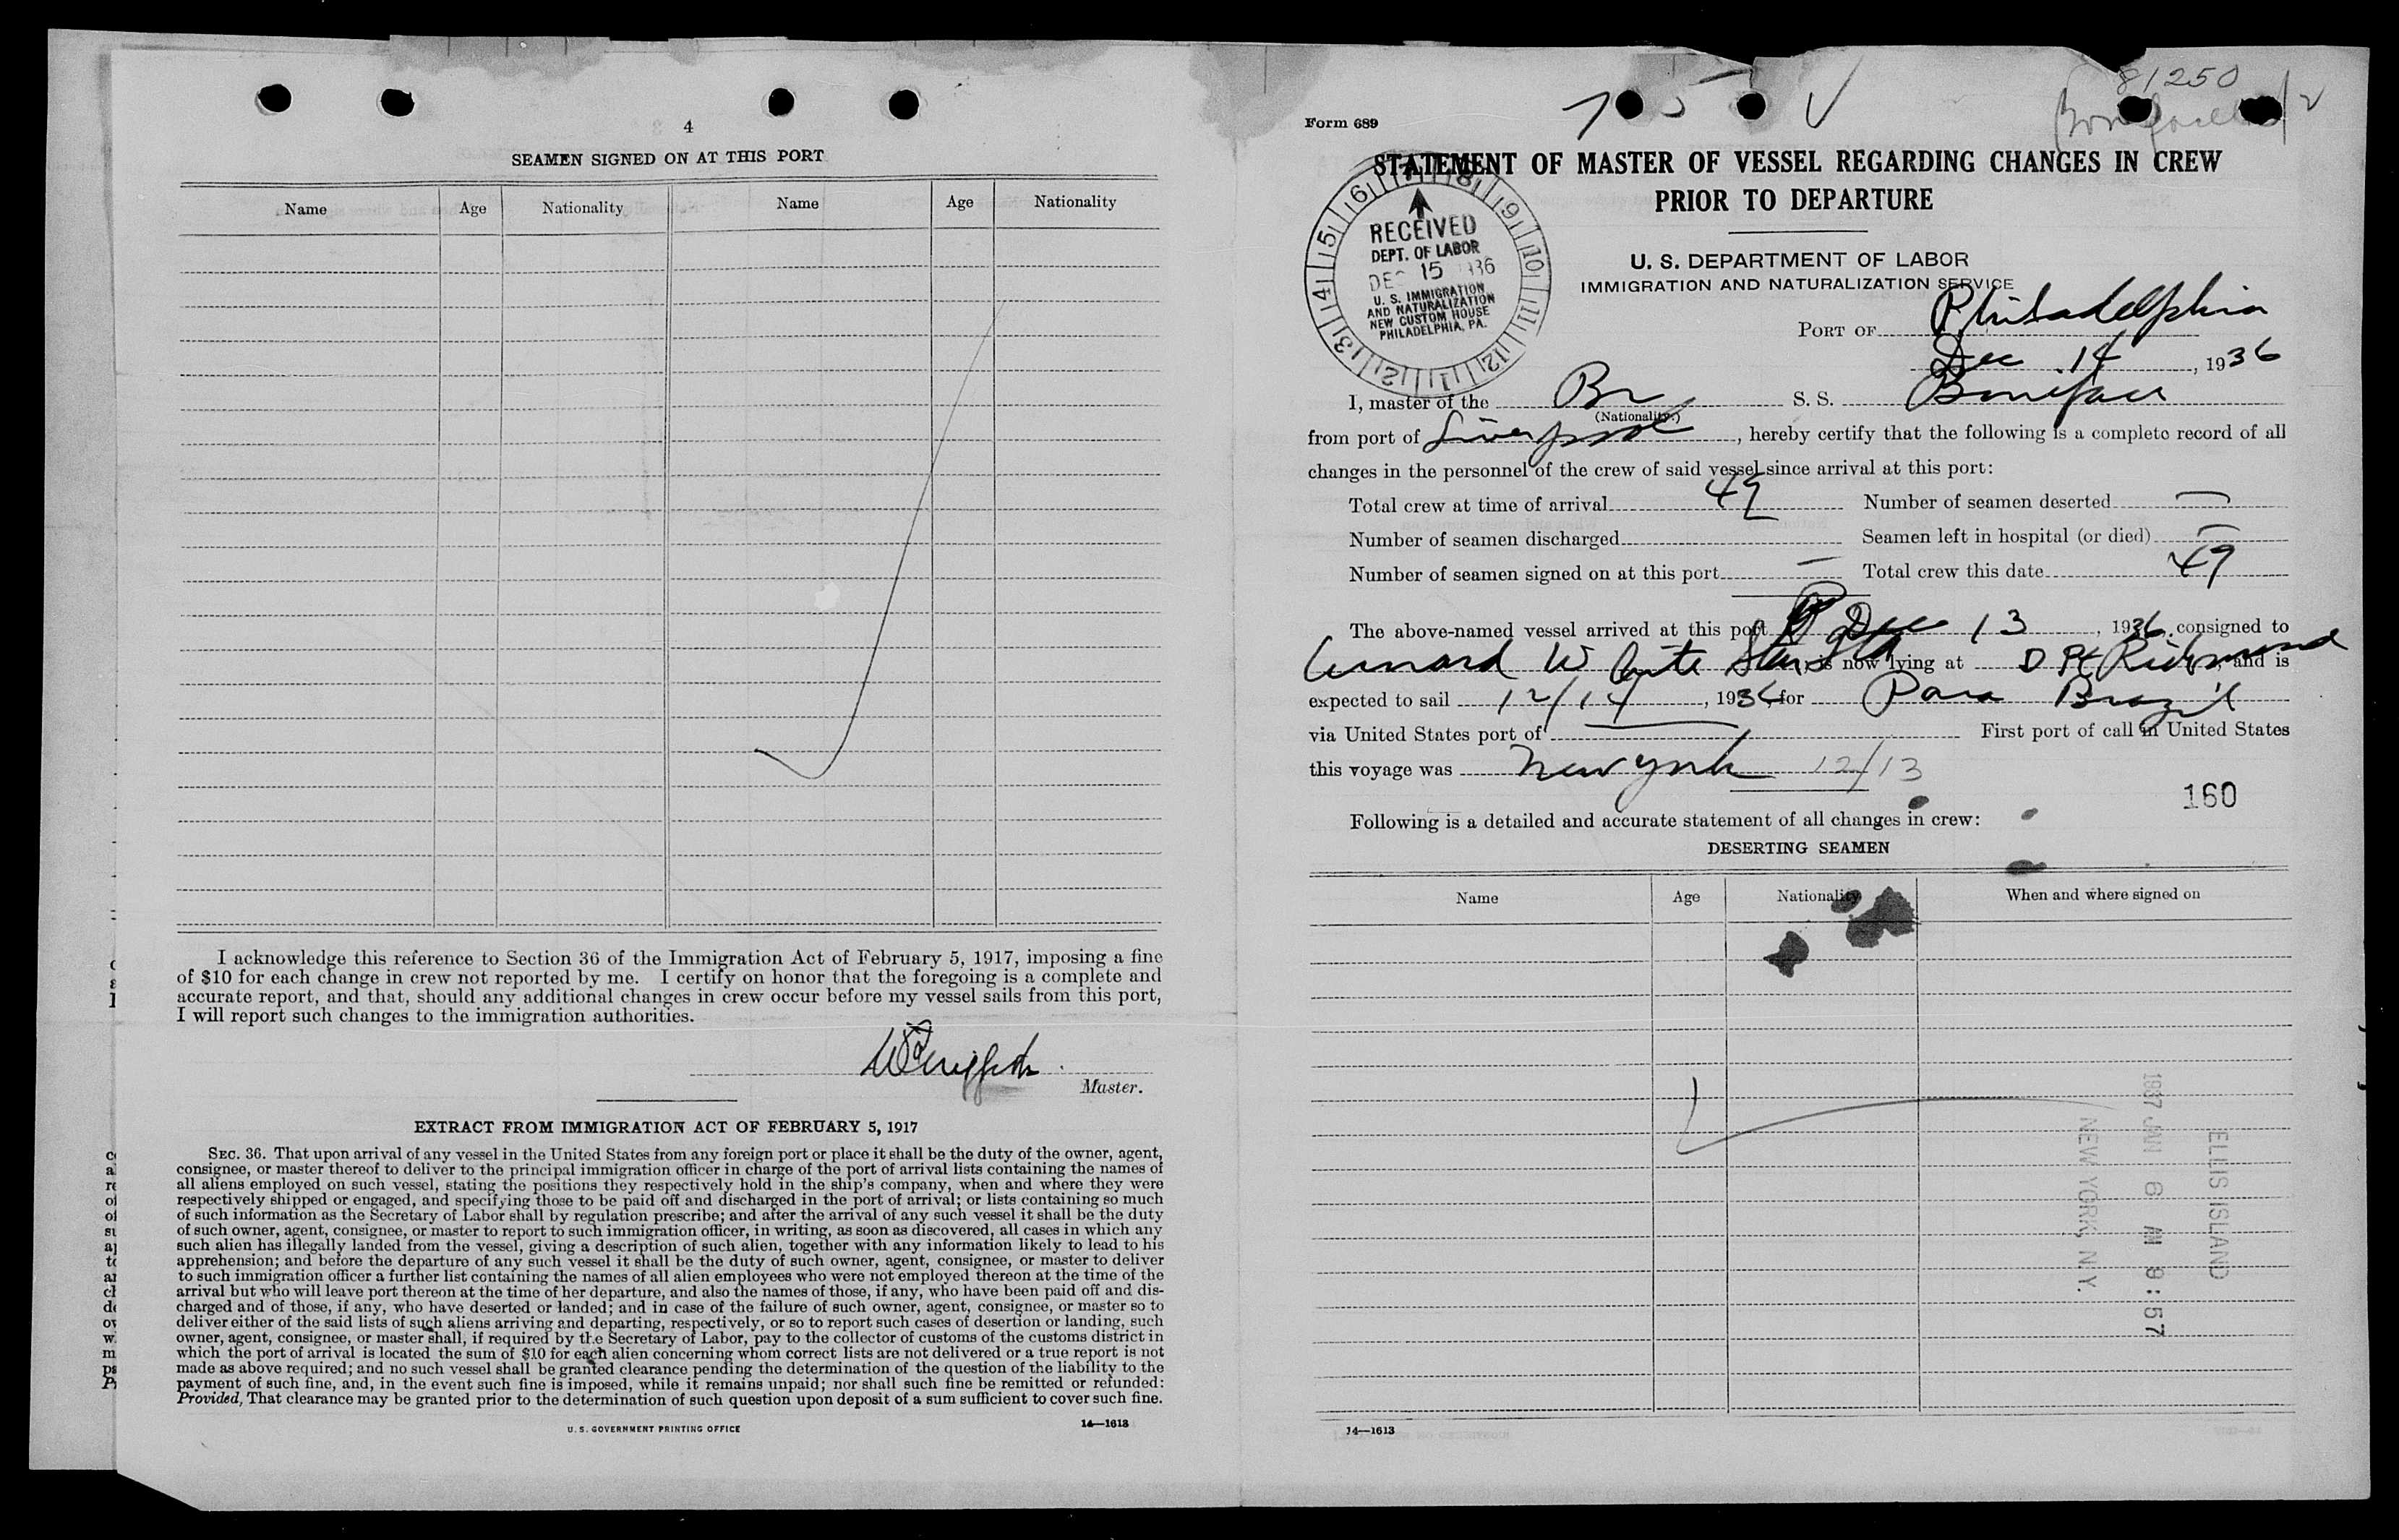 4
SEAMEN SIGNED ON AT THIS PORT
Name Age Nationality Name Age Nationality
I acknowledge this reference to Section 36 of the Immigration Act of February 5, 1917, imposing a fine
of $10 for each change in crew not reported by me. I certify on honor that the foregoing is a complete and
accurate report, and that, should any additional changes in crew occur before my vessel sails from this port,
I will report such changes to the immigration authorities.
Master.
EXTRACT FROM IMMIGRATION ACT OF FEBRUARY 5, 1917
SEC. 36. That upon arrival of any vessel in the United States from any foreign port or place it shall be the duty of the owner, agent,
consignee, or master thereof to deliver to the principal immigration officer in charge of the port of arrival lists containing the names of
all aliens employed on such vessel, stating the positions they respectively hold in the ship's company, when and where they were
respectively shipped or engaged, and specifying those to be paid off and discharged in the port of arrival; or lists containing so much
of such information as the Secretary of Labor shall by regulation prescribe; and after the arrival of any such vessel it shall be the duty
of such owner, agent, consignee, or master to report to such immigration officer, in writing, as soon as discovered, all cases in which any
such alien has illegally landed from the vessel, giving a description of such alien, together with any information likely to lead to his
apprehension; and before the departure of any such vessel it shall be the duty of such owner, agent, consignee, or master to deliver
to such immigration officer a further list containing the names of all alien employees who were not employed thereon at the time of the
arrival but who will leave port thereon at the time of her departure, and also the names of those, if any, who have been paid off and dis-
charged and of those, if any, who have deserted or landed; and in case of the failure of such owner, agent, consignee, or master so to
deliver either of the said lists of such aliens arriving and departing, respectively, or so to report such cases of desertion or landing, such
owner, agent, consignee, or master shall, if required by the Secretary of Labor, pay to the collector of customs of the customs district in
which the port of arrival is located the sum of $10 for each alien concerning whom correct lists are not delivered or a true report is not
made as above required; and no such vessel shall be granted clearance pending the determination of the question of the liability to the
payment of such fine, and, in the event such fine is imposed, while it remains unpaid; nor shall such fine be remitted or refunded:
Provided, That clearance may be granted prior to the determination of such question upon deposit of a sum sufficient to cover such fine.
U. S. GOVERNMENT PRINTING OFFICE 14—1613
81250
Form 689
STATEMENT OF MASTER OF VESSEL REGARDING CHANGES IN CREW
PRIOR TO DEPARTURE
RECEIVED
DEPT. OF LABOR
DEC 15 1936
U. S. IMMIGRATION
AND NATURALIZATION
NEW CUSTOM HOUSE
PHILADELPHIA, PA.
U. S. DEPARTMENT OF LABOR
IMMIGRATION AND NATURALIZATION SERVICE
PORT OF Philadelphia
Dec 14, 1936
I, master of the Br S. S. Boniface
(Nationality)
from port of Liverpool, hereby certify that the following is a complete record of all
changes in the personnel of the crew of said vessel since arrival at this port:
Total crew at time of arrival 49 Number of seamen deserted —
Number of seamen discharged Seamen left in hospital (or died) —
Number of seamen signed on at this port — Total crew this date 49
The above-named vessel arrived at this port Dec 13, 1936, consigned to
Cunard White Star Ltd, is now lying at Pt Richmond, and is
expected to sail 12/14, 1936, for Para Brazil
via United States port of — First port of call in United States
this voyage was New York 12/13
160
Following is a detailed and accurate statement of all changes in crew:
DESERTING SEAMEN
Name Age Nationality When and where signed on
ELLIS ISLAND
1937 JAN 6 AM 9:57
NEW YORK, N.Y.
14—1613